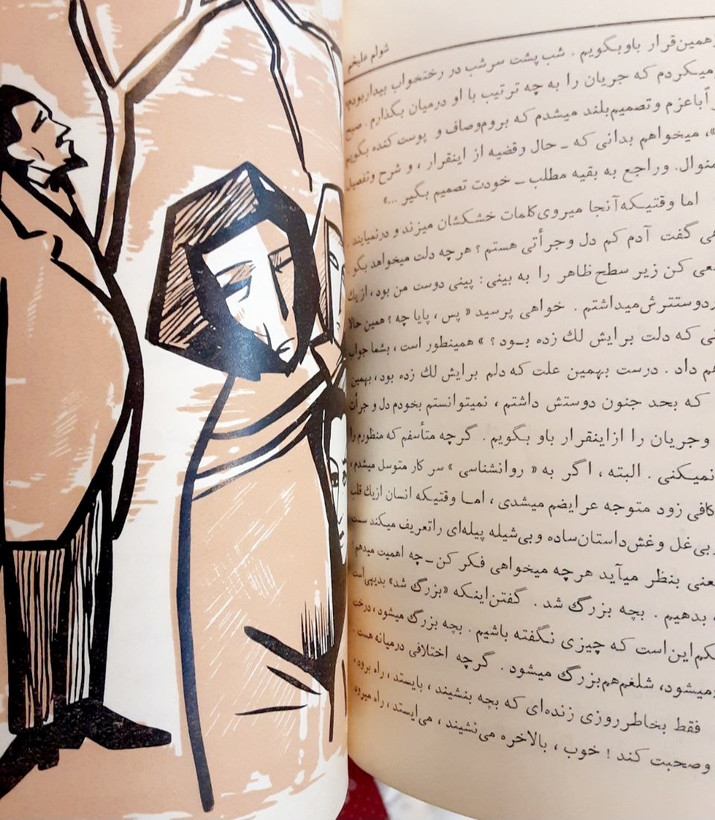 شولم علیخم
همین‌قرار باو بگویم . شب پشت سر شب در رختخواب بیدار بودم
میکردم که جریان را به چه ترتیب با او درمیان بگذارم . صبح
با عزم و تصمیم بلند میشدم که بروم و صاف و پوست کنده بگویم
، میخواهم بدانی که ـ حال و قضیه از اینقرار ، و شرح و تفصیل
منوال. و راجع به بقیه مطلب ـ خودت تصمیم بگیر ...»
اما وقتیکه آنجا میروی کلمات خشکشان میزند و درنمیایند
گفت آدم کم دل و جرأتی هستم ؟ هرچه دلت میخواهد بگو
سعی کن زیر سطح ظاهر را به بینی : پینی دوست من بود ، از یك
دوست‌تترش میداشتم . خواهی پرسید « پس ، پاپا چه ؟ همین حالا
که دلت برایش لك زده بـود ؟ » همینطور است ، بشما جواب
هم داد . درست بهمین علت که دلم برایش لك زده بود ، بهمین
که بحد جنون دوستش داشتم ، نمیتوانستم بخودم دل و جرأت
و جریان را ازاینقرار باو بـگویم . گرچه متأسفم که منظورم را
نمیـکنی . البته ، اگر به « روانشناسی » سر کار متوسل میشدم ،
کافی زود متوجه عرایضم میشدی ، امـا وقتیـکه انسان از یك قلب
بی‌غل و غش داستان ساده و بی‌شیله پیله‌ای را تعریف میکند سـت
یعنی بنظر میآید هرچه میخواهی فـکر کن ـ چه اهمیت میدهم؟
بدهیم . بچه بزرگ شد . گفتن اینـکه «بزرگ شد» بدیهی است
حکم این است که چیزی نـگفته باشیم . بچه بزرگ میشود ، درخت
میشود، شلغم هم بزرگ میشود . گرچه اختلافی درمیانه هست ـ
فقط بخاطر روزی زنده‌ای که بچه بنشیند ، بایستد ، راه برود ،
و صحبت کند ! خوب ، بالاخره می‌نشیند ، می‌ایستد ، راه میرود